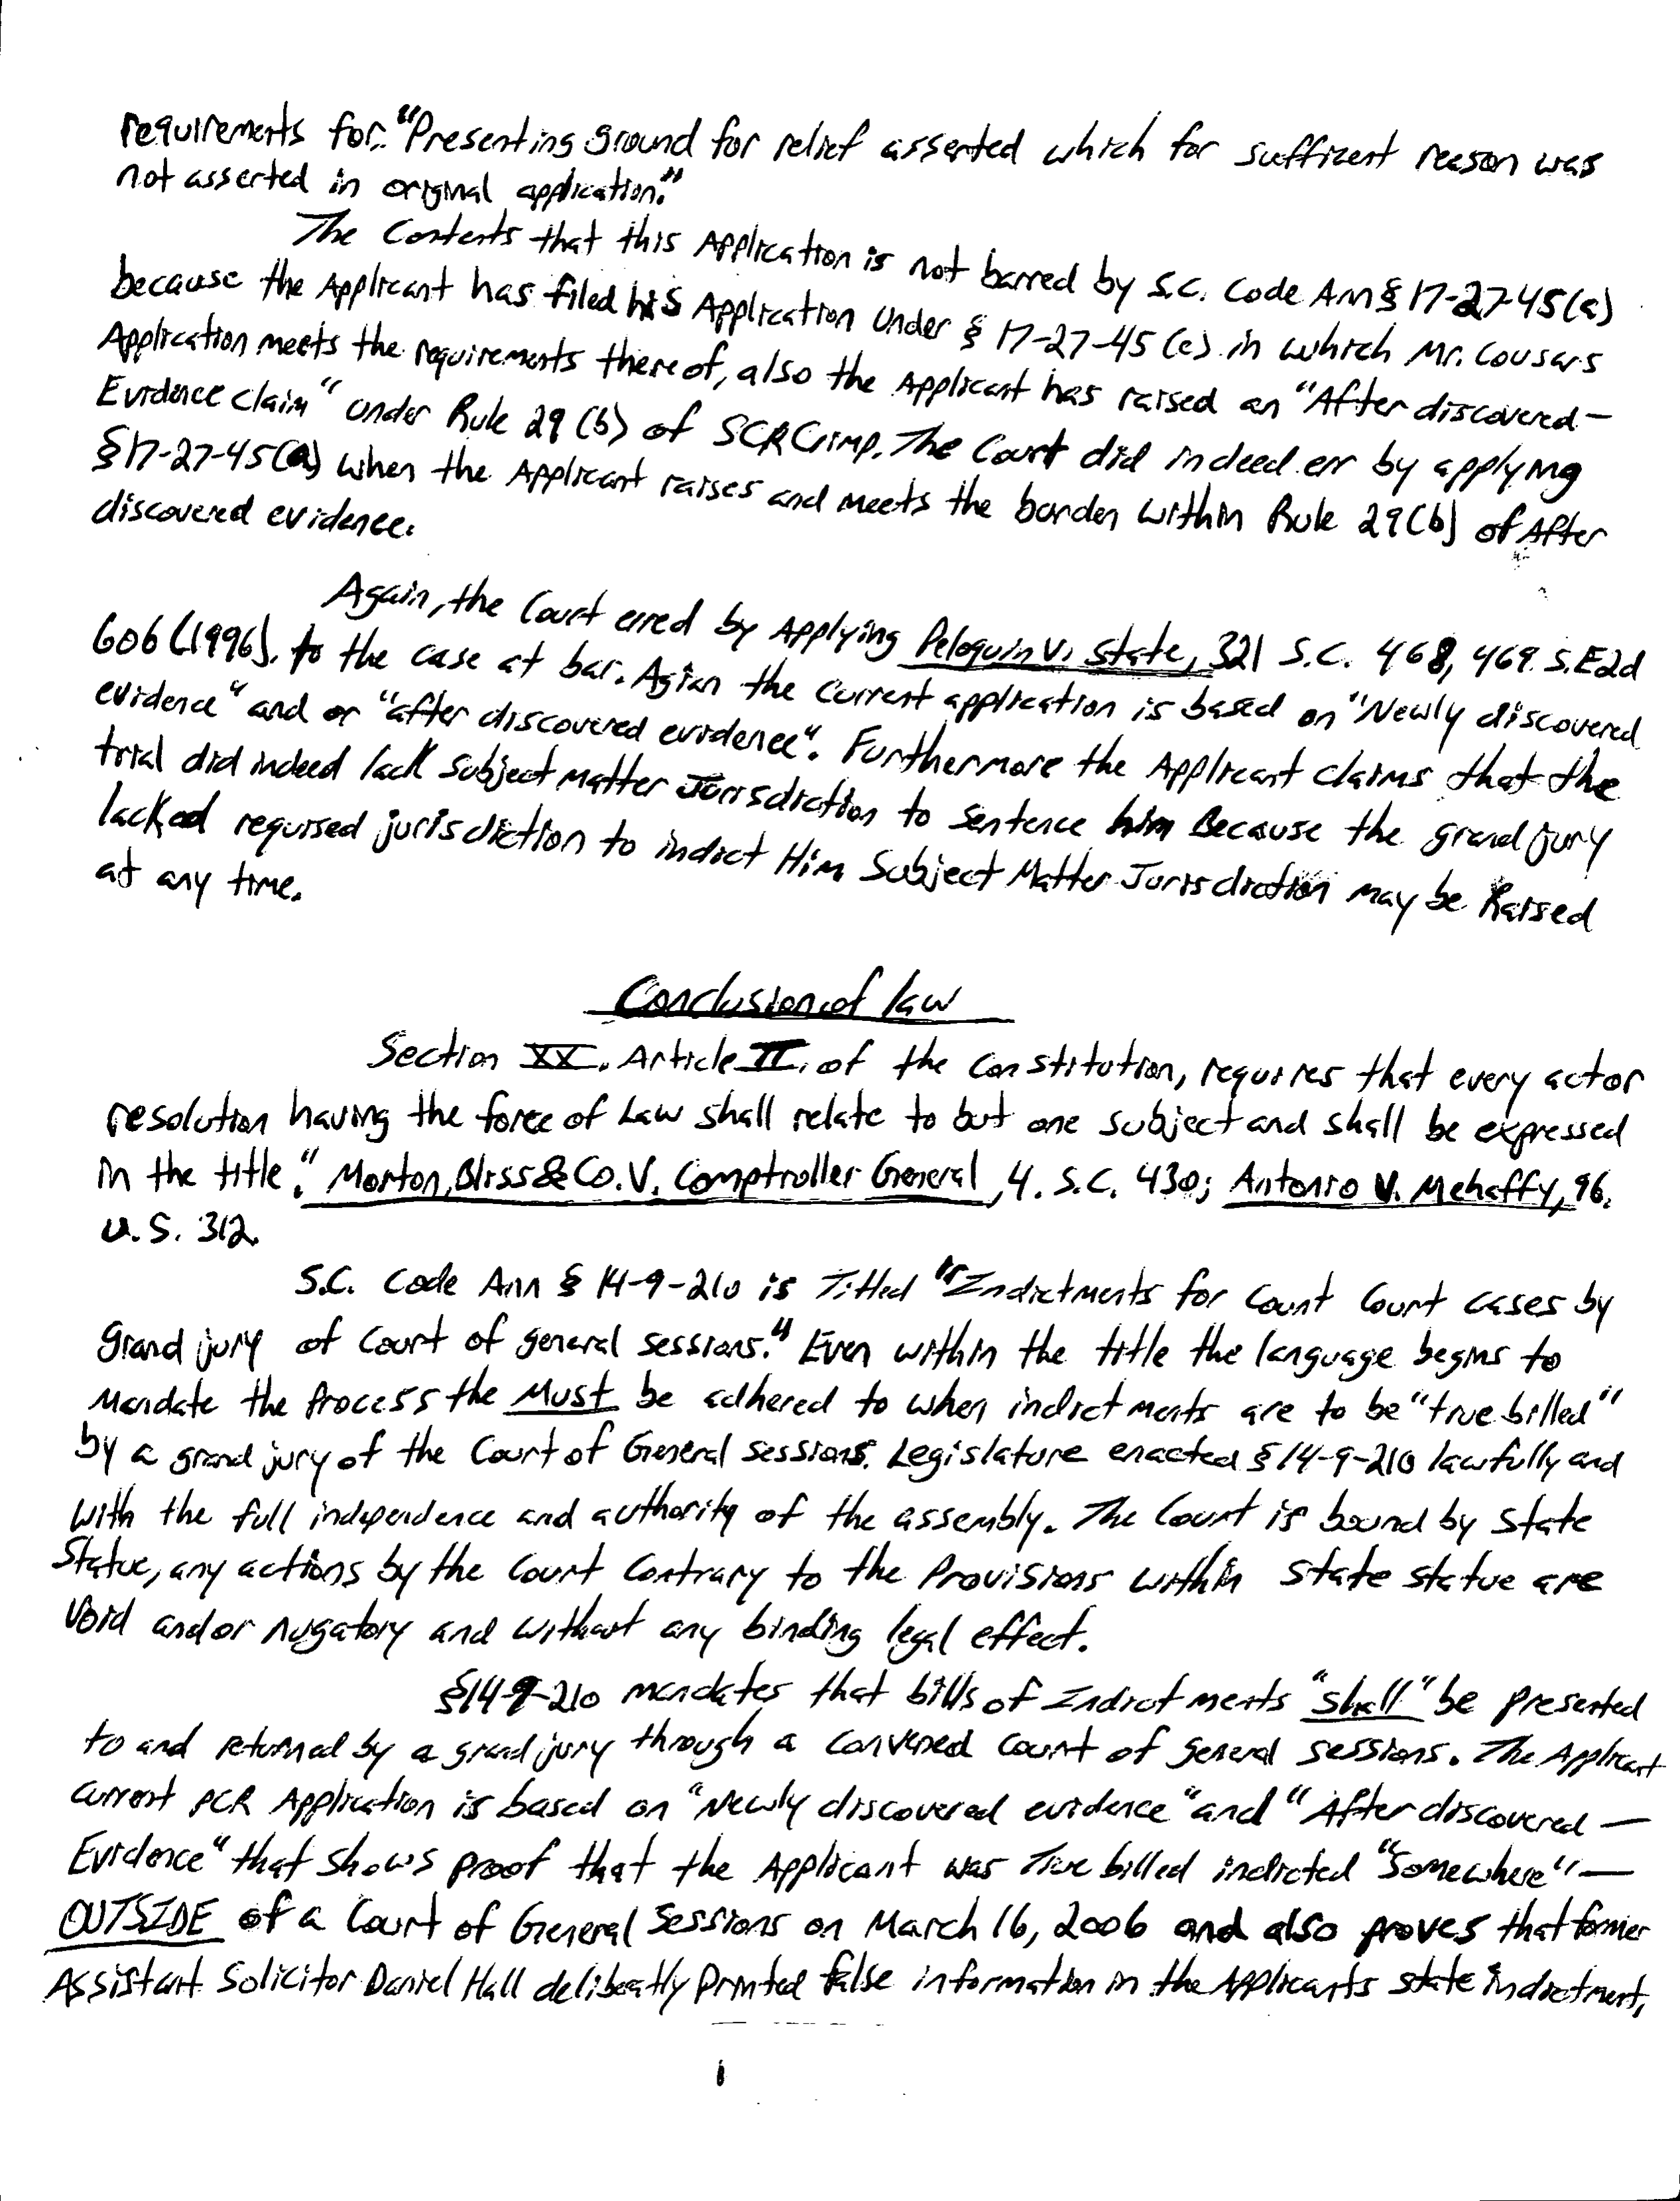 requirements for: "Presenting ground for relief asserted which for sufficent reason was
not asserted in original application."
The Contents that this Application is not barred by S.C. Code Ann § 17-27-45(a)
because the Applicant has filed his Application Under § 17-27-45(c) in which Mr. Cousars
Application meets the requirements there of, also the Applicant has raised an "After discovered-
Evidence claim" under Rule 29(b) of SCRCrimp. The Court did indeed err by applying
§17-27-45(a) when the Applicant raises and meets the burden within Rule 29(b) of After
discovered evidence.
Again, the Court erred by Applying Peloquin v. State, 321 S.C. 468, 469 S.E2d
606 (1996), to the case at bar. Agian the current application is based on "Newly discovered
evidence" and or "after discovered evidence". Furthermore the Applicant claims that the
trial did indeed lack Subject Matter Jurisdiction to Sentence him Because the grand jury
lacked requised jurisdiction to indict Him Subject Matter Jurisdiction may be Raised
at any time.
Conclusion of law
Section XX. Article II. of the Constitution, requires that every act or
resolution having the force of Law shall relate to but one subject and shall be expressed
in the title." Morton, Bliss & Co. V. Comptroller General, 4. S.C. 430; Antonio V. Mehaffy, 96.
U.S. 312.
S.C. Code Ann § 14-9-210 is Titled "Indictments for Count Court cases by
Grand jury of Court of general sessions." Even within the title the language begins to
Mandate the Process the Must be adhered to when indictments are to be "true billed"
by a grand jury of the Court of General sessions. Legislature enacted § 14-9-210 lawfully and
with the full independence and authority of the assembly. The Court is bound by State
Statue, any actions by the Court Contrary to the Provisions within state statue are
Void and/or nugatory and without any binding legal effect.
§14-9-210 mandates that bills of Indictments "shall" be presented
to and returned by a grand jury through a convened court of general sessions. The Applicant
current PCR Application is based on "Newly discovered evidence" and "After discovered-
Evidence" that shows proof that the Applicant was True billed indicted "Somewhere"-
OUTSIDE of a Court of General Sessions on March 16, 2006 and also proves that former
Assistant Solicitor Daniel Hall delibeatly printed false information in the Applicants state indictment,